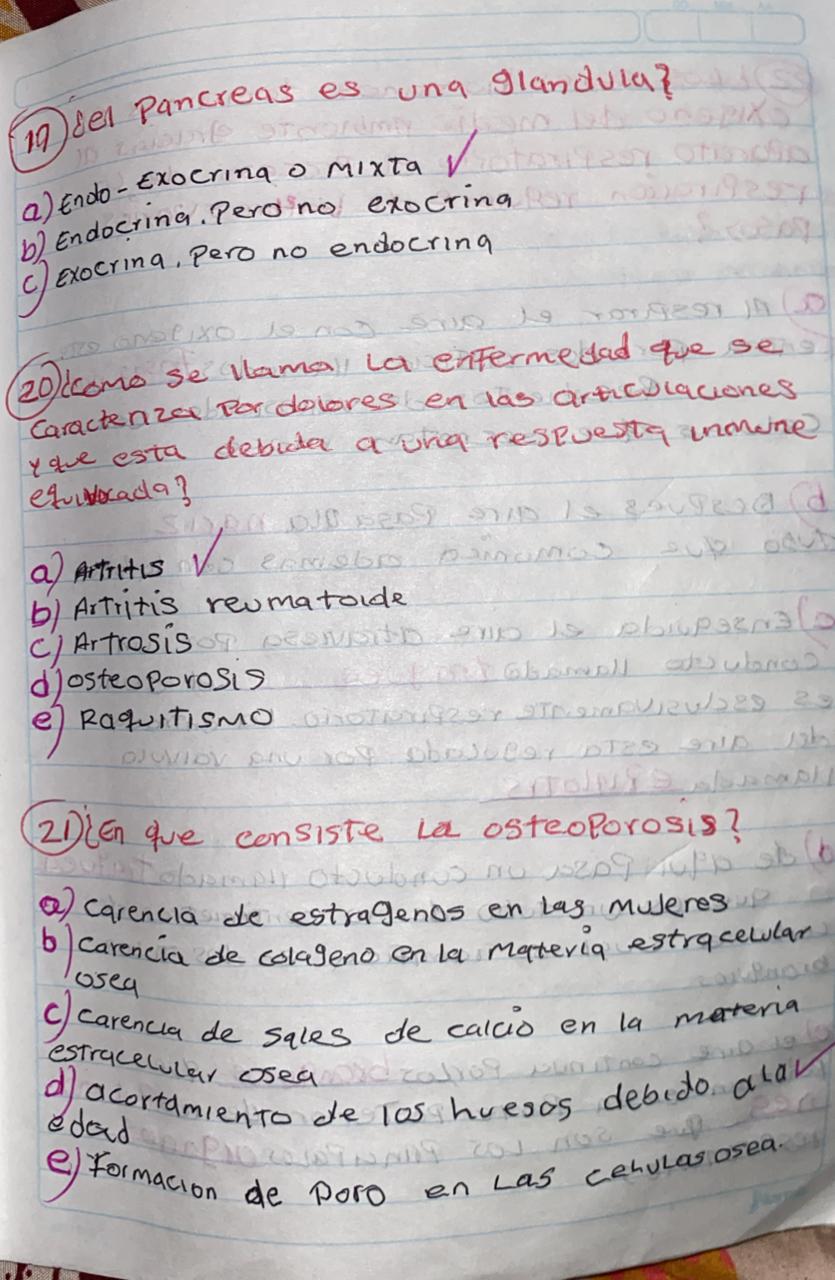 19) ¿el Pancreas es una glandula?
a) Endo-Exocrina o mixta ✓
b) Endocrina. Pero no exocrina
c) Exocrina, Pero no endocrina
20) ¿como se llama La enfermedad que se
caracteriza Por dolores en las articulaciones
y que esta debida a una respuesta inmune
equivocada?
a) Artritis ✓
b) Artritis reumatoide
c) Artrosis
d) osteoporosis
e) Raquitismo
21) ¿En que consiste La osteoporosis?
a) carencia de estragenos en las mujeres
b) carencia de colageno en la materia estracelular
osea
c) carencia de sales de calcio en la materia
estracelular osea
d) acortamiento de los huesos debido a la ✓
edad
e) Formacion de poro en Las celulas osea.